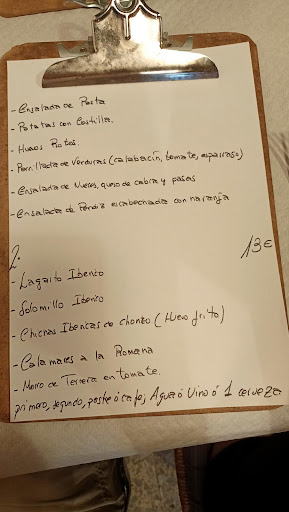 - Ensalada de Pasta
- Patatas con Costilla.
- Huevos Rotos.
- Parrillada de Verduras (calabacín, tomate, esparrago)
- Ensalada de Nueces, queso de cabra y pasas
- Ensalada de Perdiz escabechada con naranja
2.
13€
- Lagarto Iberico
- Solomillo Iberico
- Chichas Ibericas de chorizo (Huevo frito)
- Calamares a la Romana
- Morro de Ternera en tomate.
primero, segundo, postre ó cafe, Agua ó Vino ó 1 cerveza